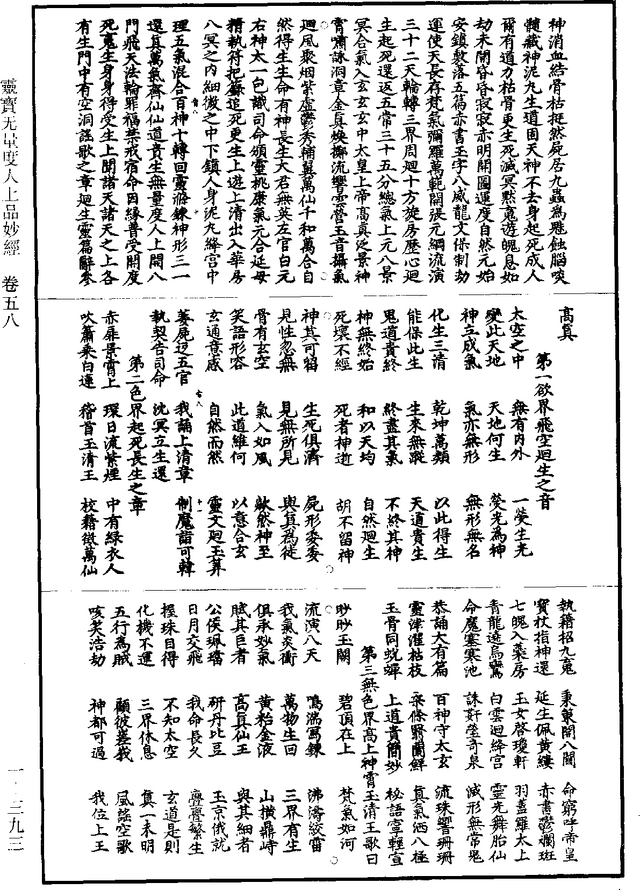 神消血結骨枯挺然屍居九蟲為雕蝕腦啖
髓藏神泥九生道固天神不去身起死成人
爾有道力枯骨更生死滅冥黙寬遊魄息如
劫未開昏昏寂寂赤明開圖運度自然元始
安鎮敷落五篇赤書玉字八威龍文保制劫
運使天長存梵氣彌羅萬範開張元綱流演
三十二天輪轉三界周迴十方旋房歷心迴
生起死還返五常三十五分總氣上元八景
冥合氣入玄玄玄中太皇上帝高真泛景神
霄嘯詠洞章金真煥擲流響雲營玉音攝氣
迴風聚烟紫虛鬱秀輔翼萬仙千和萬合自
然得生生命有神長生大君無英左官白元
右神太一包識司命頒靈桃康氣元合延母
精執符把籙追死更生上遊上清出入華房
八冥之內細微之中下鎮人身泥九絳宮中
理五氣混合百神十轉回靈滌鍊神形三一
還真萬氣齊仙仙道貴生無量度人上開八
門飛天法輪罪福禁戒宿命因緣普受開度
死魔生身身得受生上聞諸天諸天之上各
有生門中有空洞謠歌之章迴生靈篇辭參
高真
第一欲界飛空迴生之音
太空之中 無有內外 一熒生光
變此天地 天地何生 熒光為神
神立成氣 氣亦無形 無形無名
化生三清 乾坤萬類 以此得生
能保此生 生來無蹤 天道貴生
鬼道貴終 終盡其氣 不終其神
神無終始 和以天均 自然迴生
死壞不經 死者神逝 胡不留神
神其可犒 生死俱濟 屍形委委
見性忽無 見無所見 與真為徙
骨有玄空 氣入如風 歘然神至
笑語形容 此道維何 以意合玄
玄通意感 自然而然 靈文迴玉算
萎屍迄五官 我誦上清章 制魔詣可韓
執契告司命 沈冥立生還
第二色界起死長生之章
赤犀景霄上 環日流紫煙 中有綠衣人
吹簫乘白運 稽首玉清王 校籍徵萬仙
執籍招九寬 秉籙開八關 命窮吐帝皇
寶杖指神還 延生佩黃縷 赤書鬱爛斑
七魄入藥房 玉女啓瓊軒 羽蓋羅太上
青龍遶烏鸞 白雲迴絳宮 靈光舞胎仙
命魔塞寒池 誅奸瑩奇泉 減形無常鬼
恭誦大有篇 百神守太玄 流珠響珊珊
靈津灌枯枝 柔條賢蘭鮮 真氣洒八極
玉骨同蛻蟬 上道貴簡妙 秘語室輕宣
第三無色界高上神霄玉清王歌曰
眇眇玉闕 碧頂在上 梵氣如河
流演八天 鳴湍寫鍊 沸濤鉸雷
我氣炎衝 萬物生回 三界有生
俱承妙氣 黃粘金液 山橫鼎峙
賦其巨者 高真仙王 與其細者
公侯珮璫 研丹比豆 玉京俄就
日月交飛 我命長久 疊疊繁生
握珠目得 不知太空 玄道是則
化機不運 三界休息 莫一未明
五行為賊 顧彼蚩載 風謠空歌
咳笑浩劫 神都可過 我位上王
靈寶无量度人上品妙經 卷五八
一·三九三